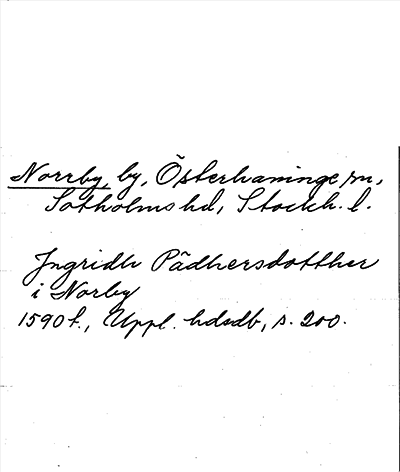 Norrby, by, Österhaninge sn,
Sotholms hd, Stockh. l.
Ingridh Pädhersdotther
i Norby
1590 f., Uppl. hdsdb, s. 200.